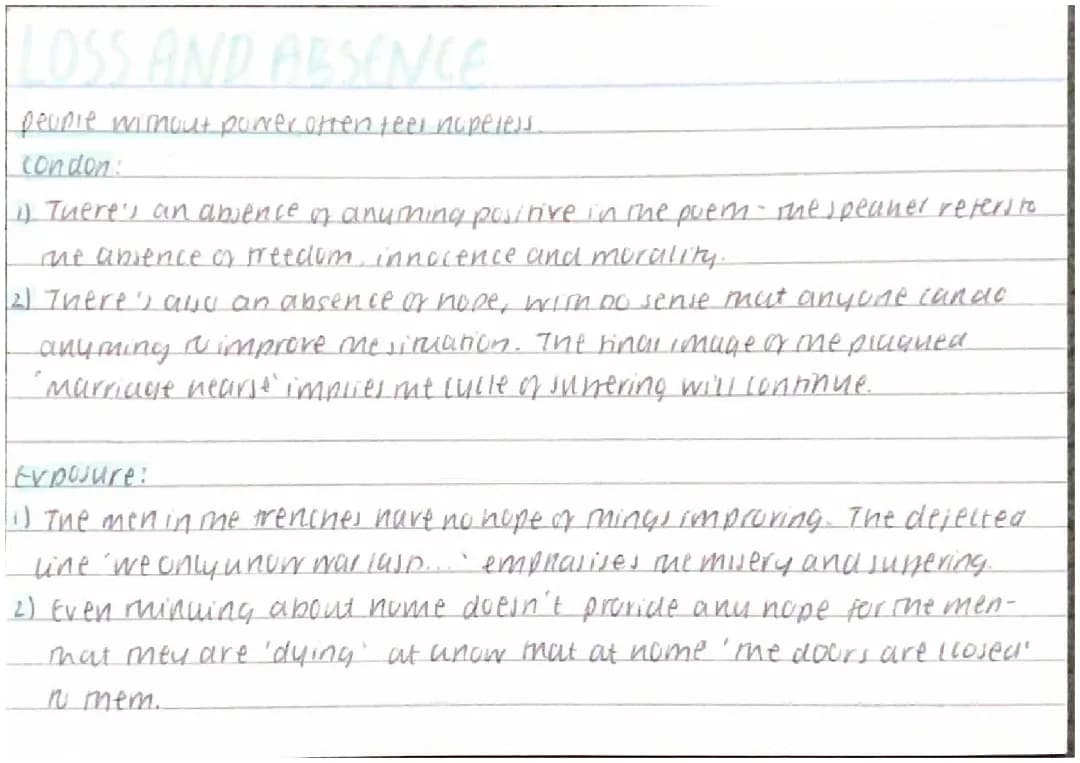 LOSS AND ABSENCE
people without power often feel hopeless.
London:
1) There's an absence of anything positive in the poem - the speaker refers to
the absence of freedom, innocence and morality.
2) There's also an absence of hope, with no sense that anyone can do
anything to improve the situation. The final image of the plagued
'marriage hearse' implies the cycle of suffering will continue.
Exposure:
1) The men in the trenches have no hope of things improving. The dejected
line 'we only know war lasts...' emphasises the misery and suffering.
2) Even thinking about home doesn't provide any hope for the men-
that they are 'dying' at know that at home 'the doors are closed'
to them.